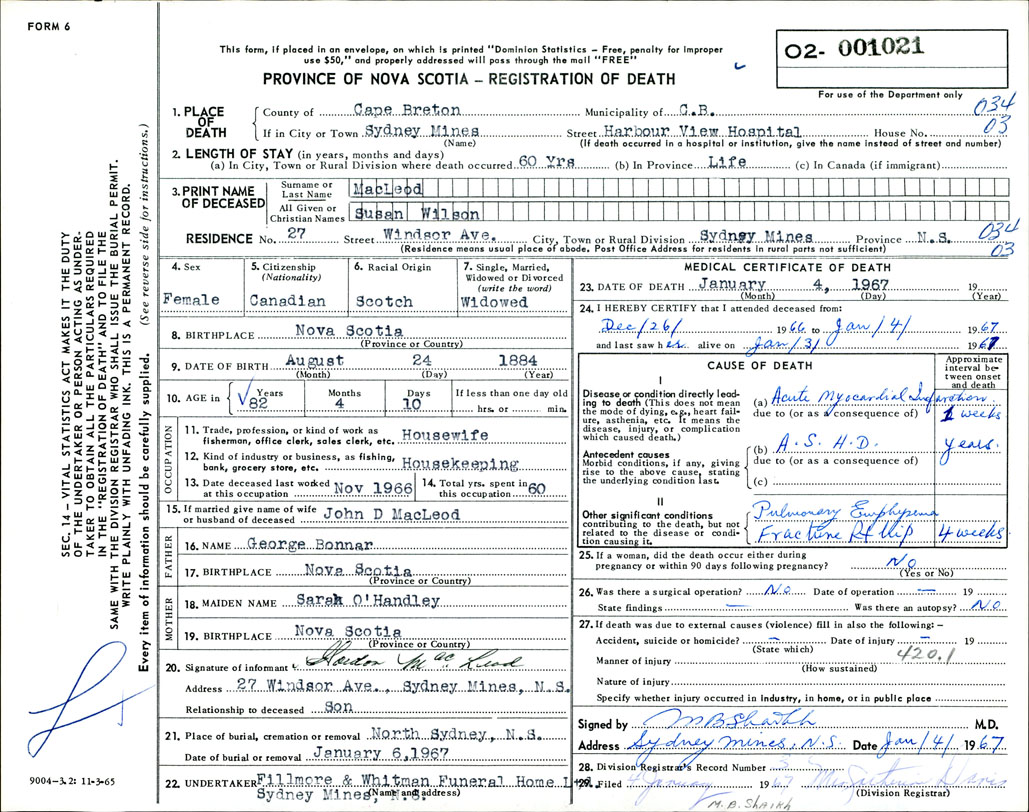 FORM 6
This form, if placed in an envelope, on which is printed "Dominion Statistics - Free, penalty for improper
use $50," and properly addressed will pass through the mail "FREE"
PROVINCE OF NOVA SCOTIA - REGISTRATION OF DEATH
02- 001021
For use of the Department only
034
03
1. PLACE OF DEATH
County of Cape Breton Municipality of C.B.
If in City or Town Sydney Mines Street Harbour View Hospital House No.
(Name) (If death occurred in a hospital or institution, give the name instead of street and number)
2. LENGTH OF STAY (in years, months and days)
(a) In City, Town or Rural Division where death occurred 60 Yrs (b) In Province Life (c) In Canada (if immigrant)
3. PRINT NAME OF DECEASED
Surname or Last Name MacLeod
All Given or Christian Names Susan Wilson
RESIDENCE No. 27 Street Windsor Ave. City, Town or Rural Division Sydney Mines Province N.S.
(Residence means usual place of abode. Post Office Address for residents in rural parts not sufficient)
034
03
4. Sex
Female
5. Citizenship
(Nationality)
Canadian
6. Racial Origin
Scotch
7. Single, Married,
Widowed or Divorced
(write the word)
Widowed
8. BIRTHPLACE Nova Scotia
(Province or Country)
9. DATE OF BIRTH August 24 1884
(Month) (Day) (Year)
10. AGE in Years Months Days If less than one day old
82 4 10 hrs. or min.
OCCUPATION
11. Trade, profession, or kind of work as
fisherman, office clerk, sales clerk, etc. Housewife
12. Kind of industry or business, as fishing,
bank, grocery store, etc. Housekeeping
13. Date deceased last worked
at this occupation Nov 1966
14. Total yrs. spent in
this occupation 60
15. If married give name of wife
or husband of deceased John D MacLeod
FATHER
16. NAME George Bonnar
17. BIRTHPLACE Nova Scotia
(Province or Country)
MOTHER
18. MAIDEN NAME Sarah O'Handley
19. BIRTHPLACE Nova Scotia
(Province or Country)
20. Signature of informant Gordon MacLeod
Address 27 Windsor Ave., Sydney Mines, N.S.
Relationship to deceased Son
21. Place of burial, cremation or removal North Sydney, N.S.
Date of burial or removal January 6,1967
22. UNDERTAKER Fillmore & Whitman Funeral Home Ltd.
(Name and address)
Sydney Mines, N.S.
MEDICAL CERTIFICATE OF DEATH
23. DATE OF DEATH January 4, 1967 19
(Month) (Day) (Year)
24. I HEREBY CERTIFY that I attended deceased from:
Dec/26/ 1966 to Jan/4/ 1967
and last saw her alive on Jan/3/ 1967
CAUSE OF DEATH
Approximate
interval be-
tween onset
and death
I
Disease or condition directly lead-
ing to death (This does not mean
the mode of dying, e.g., heart fail-
ure, asthenia, etc. It means the
disease, injury, or complication
which caused death.)
(a) Acute Myocardial Infarction
due to (or as a consequence of) weeks
(b) A.S.H.D. years.
due to (or as a consequence of)
Antecedent causes
Morbid conditions, if any, giving
rise to the above cause, stating
the underlying condition last.
(c)
II
Other significant conditions
contributing to the death, but not
related to the disease or condi-
tion causing it.
Pulmonary Emphysema
Fracture Rt Hip 4 weeks
25. If a woman, did the death occur either during
pregnancy or within 90 days following pregnancy? No
(Yes or No)
26. Was there a surgical operation? No Date of operation — 19
State findings — Was there an autopsy? No
27. If death was due to external causes (violence) fill in also the following: -
Accident, suicide or homicide? — Date of injury — 19
(State which)
420.1
Manner of injury
(How sustained)
Nature of injury
Specify whether injury occurred in industry, in home, or in public place
Signed by M B Shaikh M.D.
Address Sydney Mines, N.S. Date Jan/4/ 1967
28. Division Registrar's Record Number
29. Filed 4 January 1967 Davis
(Division Registrar)
M. B. Shaikh
SEC. 14 - VITAL STATISTICS ACT MAKES IT THE DUTY
OF THE UNDERTAKER OR PERSON ACTING AS UNDER-
TAKER TO OBTAIN ALL THE PARTICULARS REQUIRED
IN THE "REGISTRATION OF DEATH" AND TO FILE THE
SAME WITH THE DIVISION REGISTRAR WHO SHALL ISSUE THE BURIAL PERMIT.
WRITE PLAINLY WITH UNFADING INK. THIS IS A PERMANENT RECORD.
Every item of information should be carefully supplied. (See reverse side for instructions.)
9004-3.2: 11-3-65